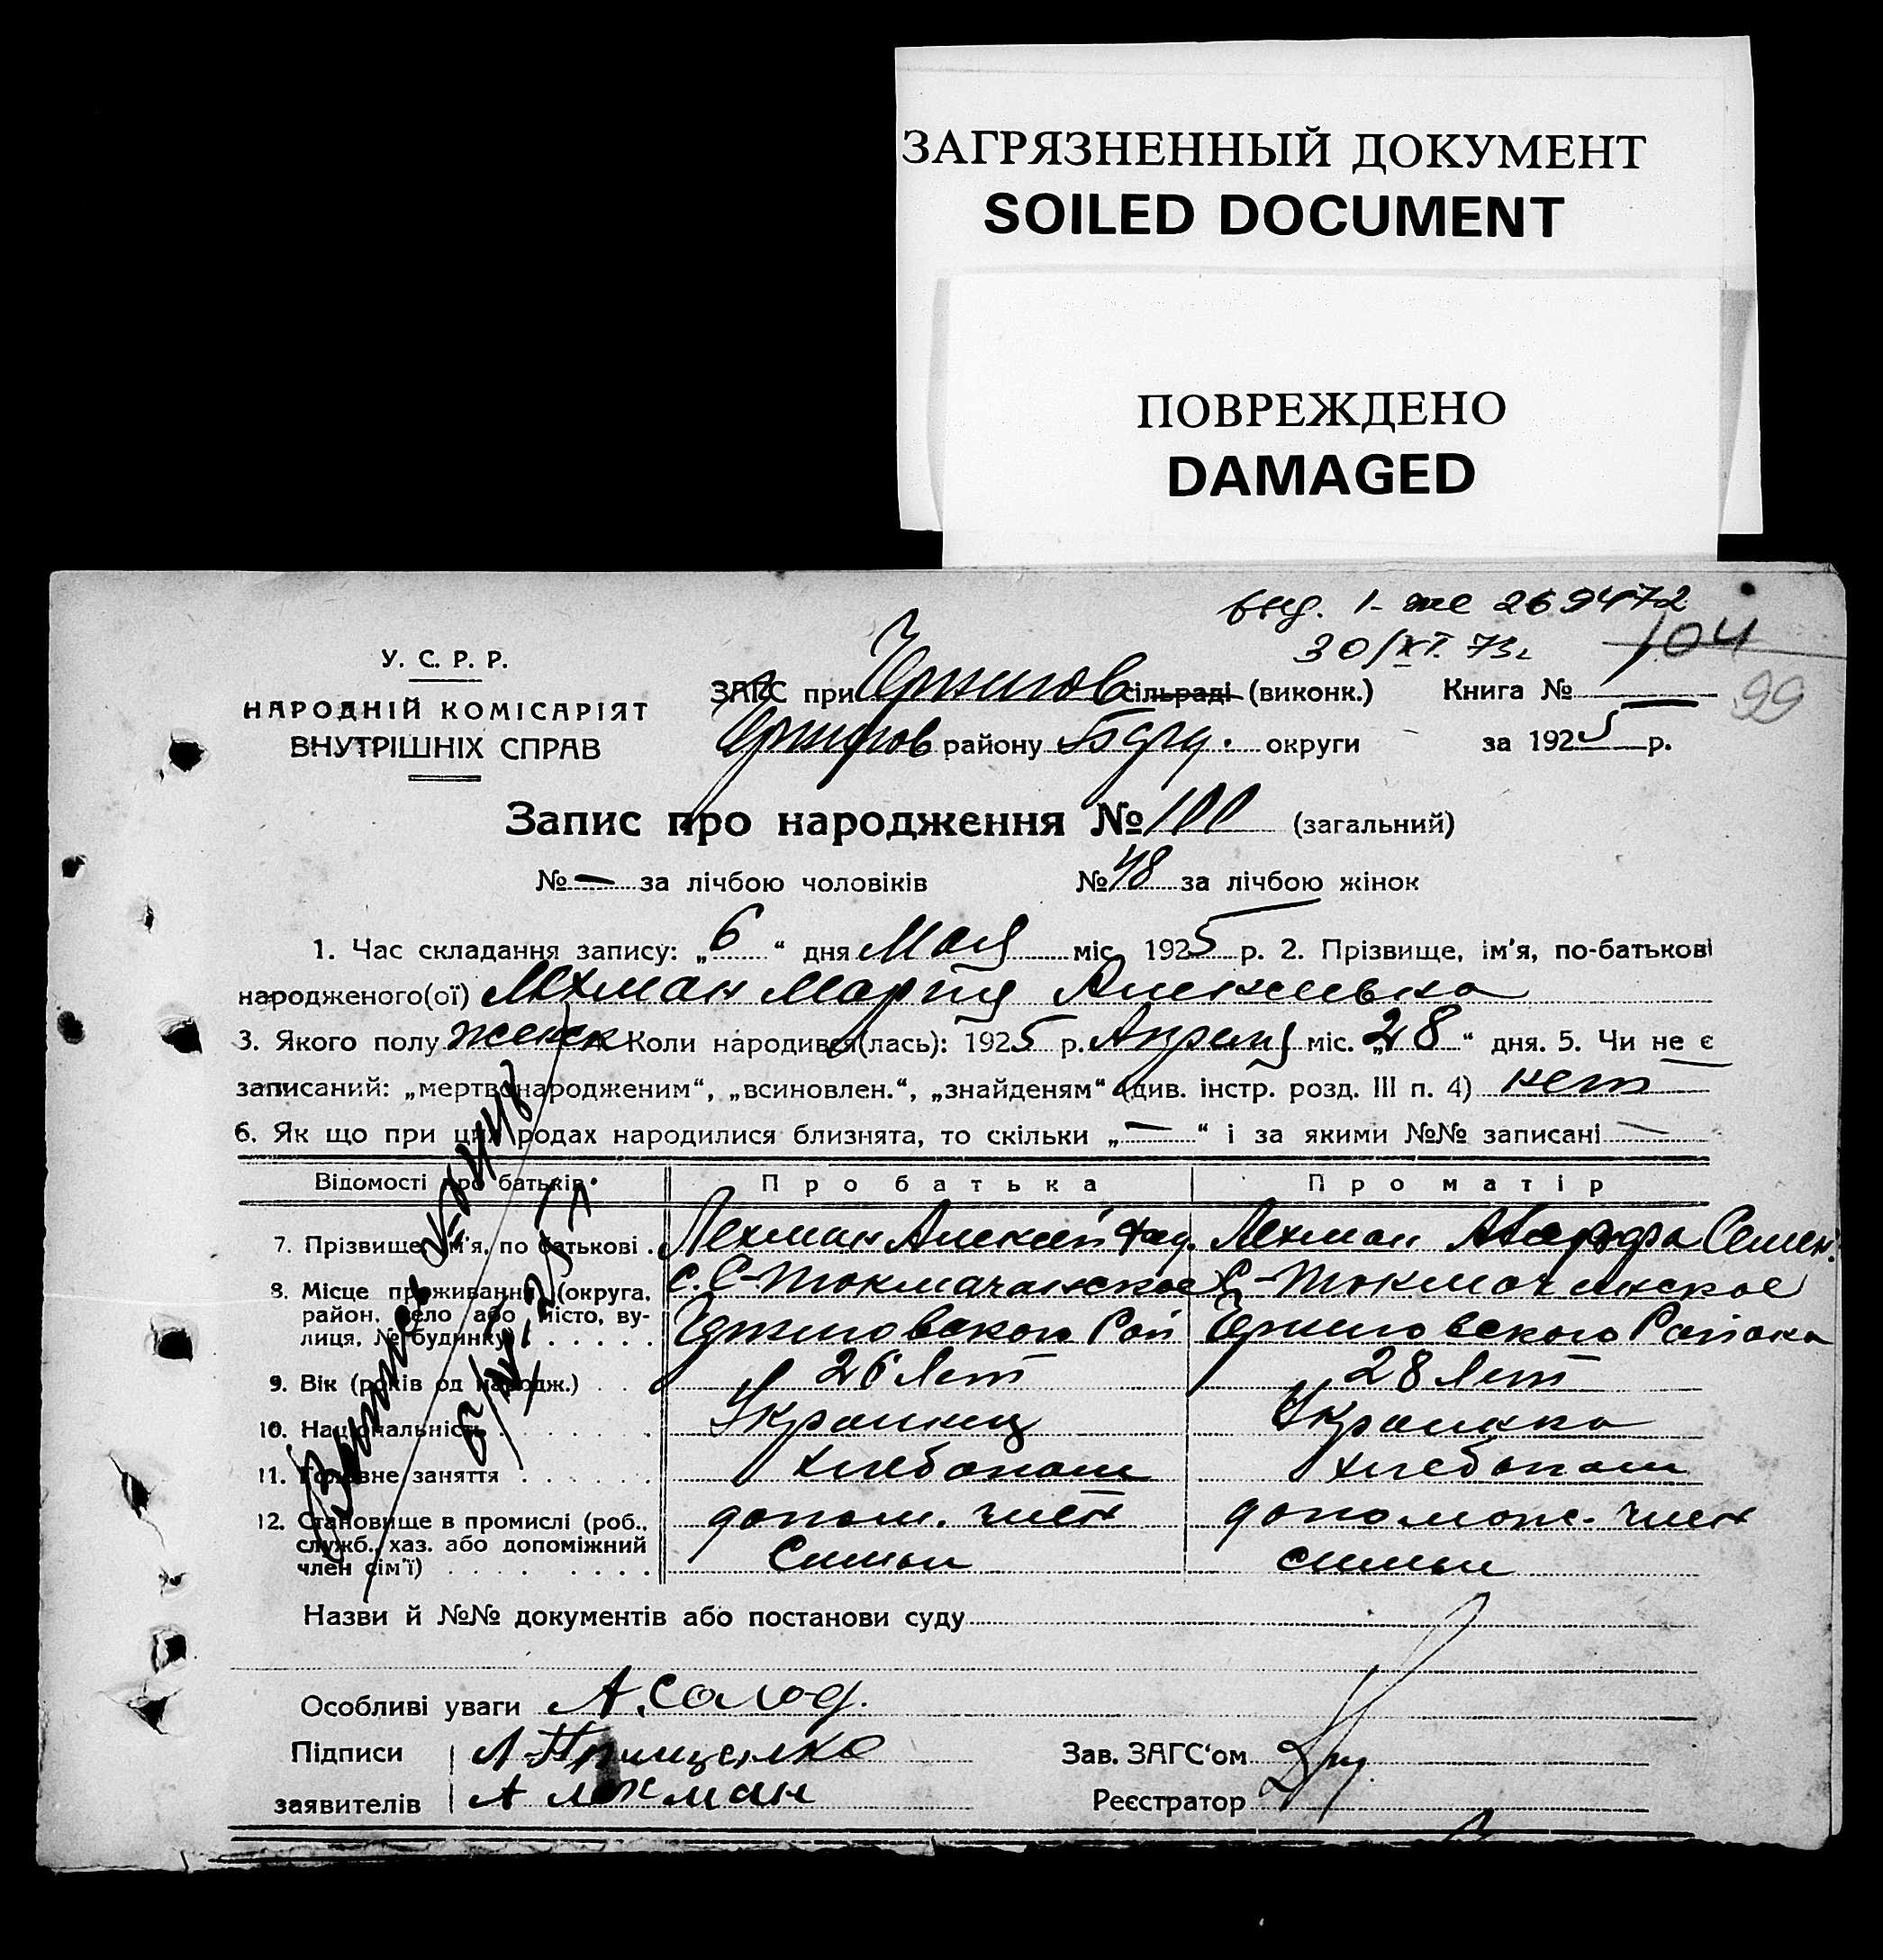 ЗАГРЯЗНЕННЫЙ ДОКУМЕНТ
SOILED DOCUMENT
ПОВРЕЖДЕНО
DAMAGED
выд. 1- 269472
30/XI. 73г 104
99
У. С. Р. Р.
НАРОДНІЙ КОМІСАРІЯТ
ВНУТРІШНІХ СПРАВ
ЗАГС при Чернигов сільраді (виконк.) Книга №
Чернигов району округи за 1925 р.
Запис про народження № 100 (загальний)
№ — за лічбою чоловіків № 48 за лічбою жінок
1. Час складання запису: „6“ дня Мая міс. 1925 р. 2. Прізвище, ім'я, по-батькові
народженого(ої) Лехман Мария Алексеевна
3. Якого полу женск Коли народився(лась): 1925 р. Апреля міс. „28“ дня. 5. Чи не є
записаний: „мертвонародженим“, „всиновлен.“, „знайденям“ (див. інстр. розд. III п. 4) нет
6. Як що при цих родах народилися близнята, то скільки „—“ і за якими №№ записані —
Відомості про батьків Про батька Про матір
7. Прізвище, ім'я, по батькові . Лехман Алексей Лехман Марфа Семен.
8. Місце проживання (округа, район, село або місто, вулиця, № будинку) с. С-Токмачанское С-Токмочанское
Черниговского Рай Черниговского Района
9. Вік (років од народж.) . . 26 Лет 28 Лет
10. Національність . . . . . . . Украинец Украинка
11. Головне заняття . . . . . . хлебопаш хлебопаш
12. Становище в промислі (роб., служб., хаз. або допоміжний член сім'ї) . . . . . . . . допом. член допоможс. член
Семьи семьи
Назви й №№ документів або постанови суду
Особливі уваги А. Солод.
Підписи Зав. ЗАГС'ом
заявителів А Лехман Реєстратор